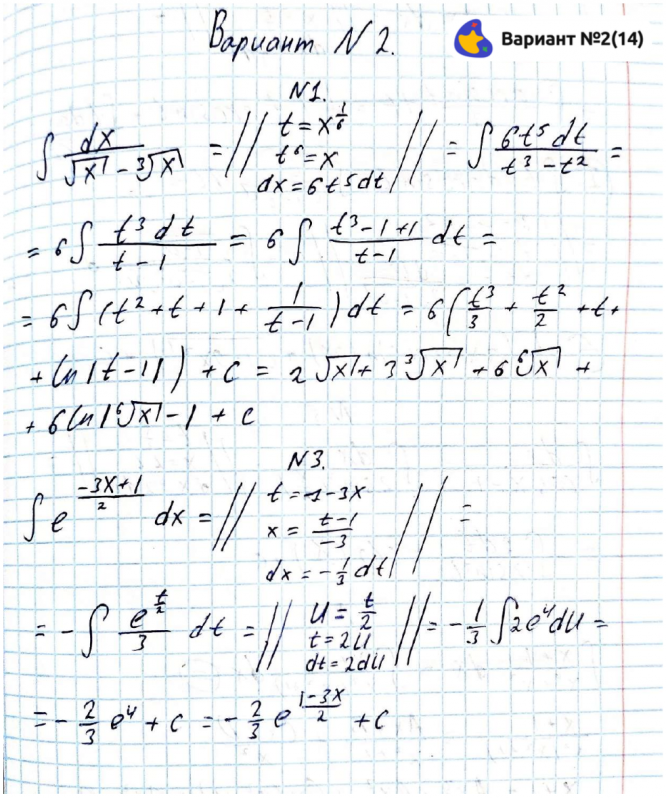 Вариант N 2.
Вариант №2(14)
N1.
∫ dx/(√x - ³√x) = // t = x^(1/6) t⁶ = x dx = 6t⁵dt // = ∫ 6t⁵dt/(t³ - t²) =
= 6∫ t³dt/(t - 1) = 6∫ (t³ - 1 + 1)/(t - 1) dt =
= 6∫(t² + t + 1 + 1/(t - 1))dt = 6(t³/3 + t²/2 + t +
+ ln|t - 1|) + c = 2√x + 3³√x + 6⁶√x +
+ 6ln|⁶√x - 1 + c
N3.
∫e^((-3x+1)/2) dx = // t = 1 - 3x x = (t - 1)/(-3) dx = -1/3 dt // =
= -∫ e^(t/2)/3 dt = // u = t/2 t = 2u dt = 2du // = -1/3 ∫2e^u du =
= -2/3 e^u + c = -2/3 e^((1-3x)/2) + c